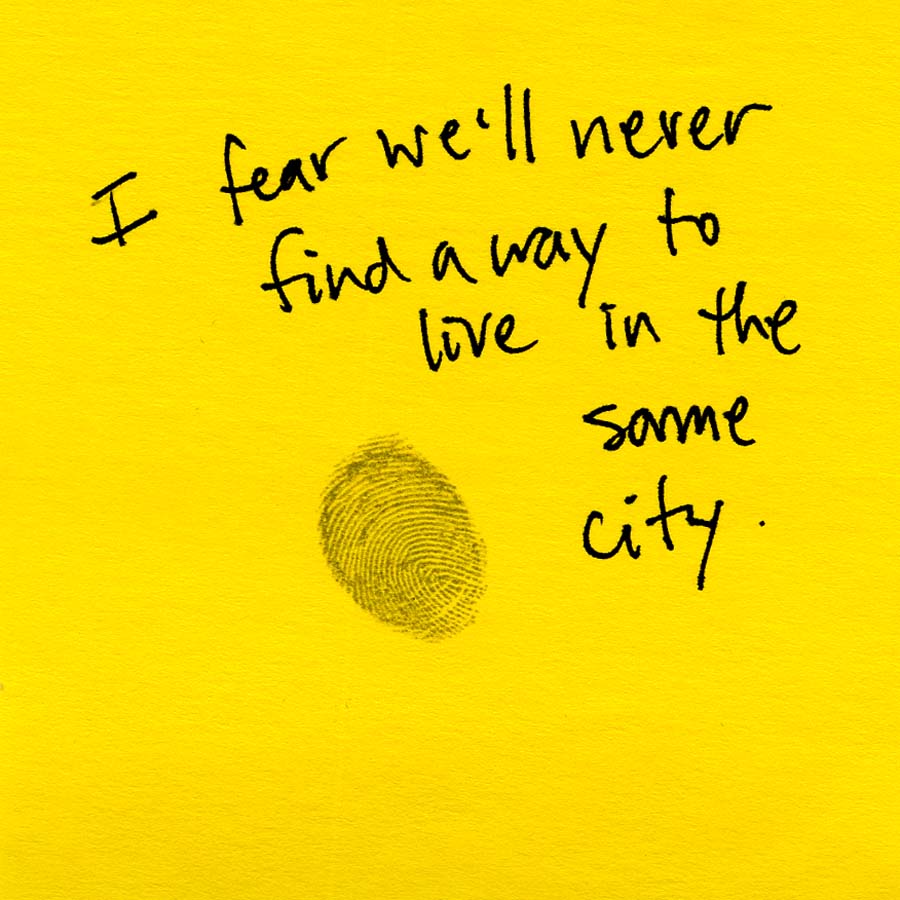 I fear we'll never
find a way to
live in the
same
city.